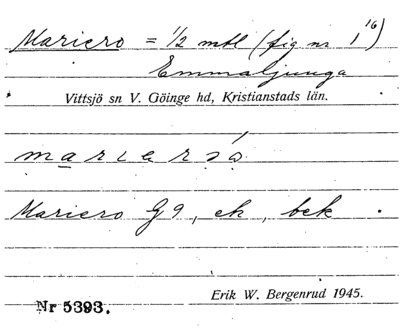 Mariero = 1/2 mtl (fig nr 1¹⁶)
Emmaljunga
Vittsjö sn V. Göinge hd, Kristianstads län.
Mariero G 9, ek, bek.
Erik W. Bergenrud 1945.
Nr 5393.